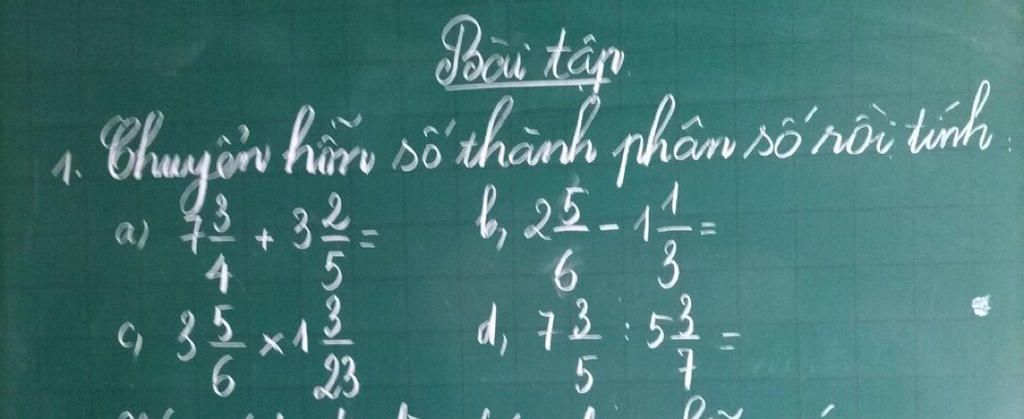 Bài tập
1. Chuyển hỗn số thành phân số rồi tính:
a) 7 3/4 + 3 2/5 = b, 2 5/6 - 1 1/3 =
c, 3 5/6 x 1 3/23 d, 7 3/5 : 5 3/7 =